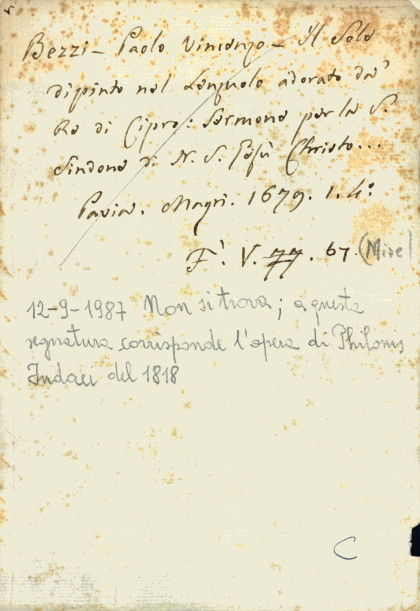 Bezzi - Paolo Vincenzo - Il Sole
dipinto nel Lenzuolo adorato da'
Re di Cipro: Sermone per la S.
Sindone di N. S. Gesù Christo...
Pavia. Magri. 1679. 1. 4°
F. V. 77. 67 (Misc)
12-9-1987 Non si trova; a questa
segnatura corrisponde l'opera di Philonis
Judaei del 1818
C